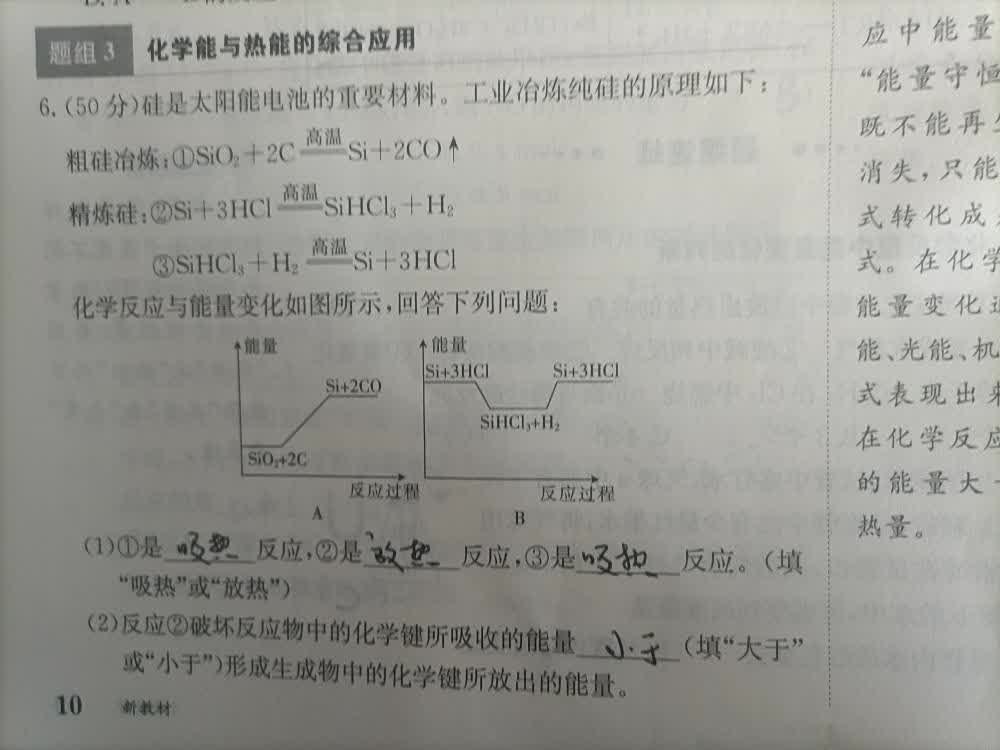 题组3 化学能与热能的综合应用
6.(50分)硅是太阳能电池的重要材料。工业冶炼纯硅的原理如下:
粗硅冶炼:①SiO₂+2C 高温 Si+2CO↑
精炼硅:②Si+3HCl 高温 SiHCl₃+H₂
③SiHCl₃+H₂ 高温 Si+3HCl
化学反应与能量变化如图所示,回答下列问题:
能量
Si+2CO
SiO₂+2C
反应过程
A
能量
Si+3HCl
Si+3HCl
SiHCl₃+H₂
反应过程
B
(1)①是 吸热 反应,②是 放热 反应,③是 吸热 反应。(填
“吸热”或“放热”)
(2)反应②破坏反应物中的化学键所吸收的能量 小于 (填“大于”
或“小于”)形成生成物中的化学键所放出的能量。
10 新教材
应中能量
“能量守恒
既不能再
消失,只能
式转化成
式。在化学
能量变化
能、光能、机
式表现出来
在化学反应
的能量大
热量。